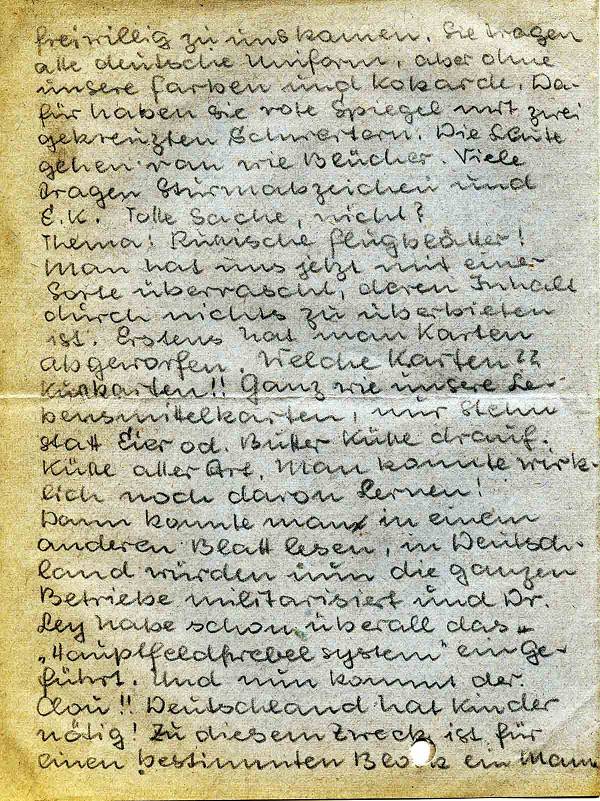 freiwillig zu uns kamen. Sie tragen
alle deutsche Uniform, aber ohne
unsere Farben und Kokarde. Da-
für haben sie rote Spiegel mit zwei
gekreuzten Schwertern. Die Leute
gehen ran wie Blücher. Viele
tragen Sturmabzeichen und
E.K. Tolle Sache, nicht?
Thema: Russische Flugblätter!
Man hat uns jetzt mit einer
Sorte überrascht, deren Inhalt
durch nichts zu überbieten
ist. Erstens hat man Karten
abgeworfen. Welche Karten??
Kußkarten!! Ganz wie unsere Le-
bensmittelkarten, nur stehn
statt Eier od. Butter Küße drauf.
Küße aller Art. Man konnte wirk-
lich noch daran lernen!
Dann konnte man in einem
anderen Blatt lesen, in Deutsch-
land würden nun die ganzen
Betriebe militarisiert und Dr.
Ley habe schon überall das
„Hauptfeldwebelsystem" einge-
führt. Und nun kommt der
Clou!! Deutschland hat Kinder
nötig! Zu diesem Zweck ist für
einen bestimmten Block ein Mann